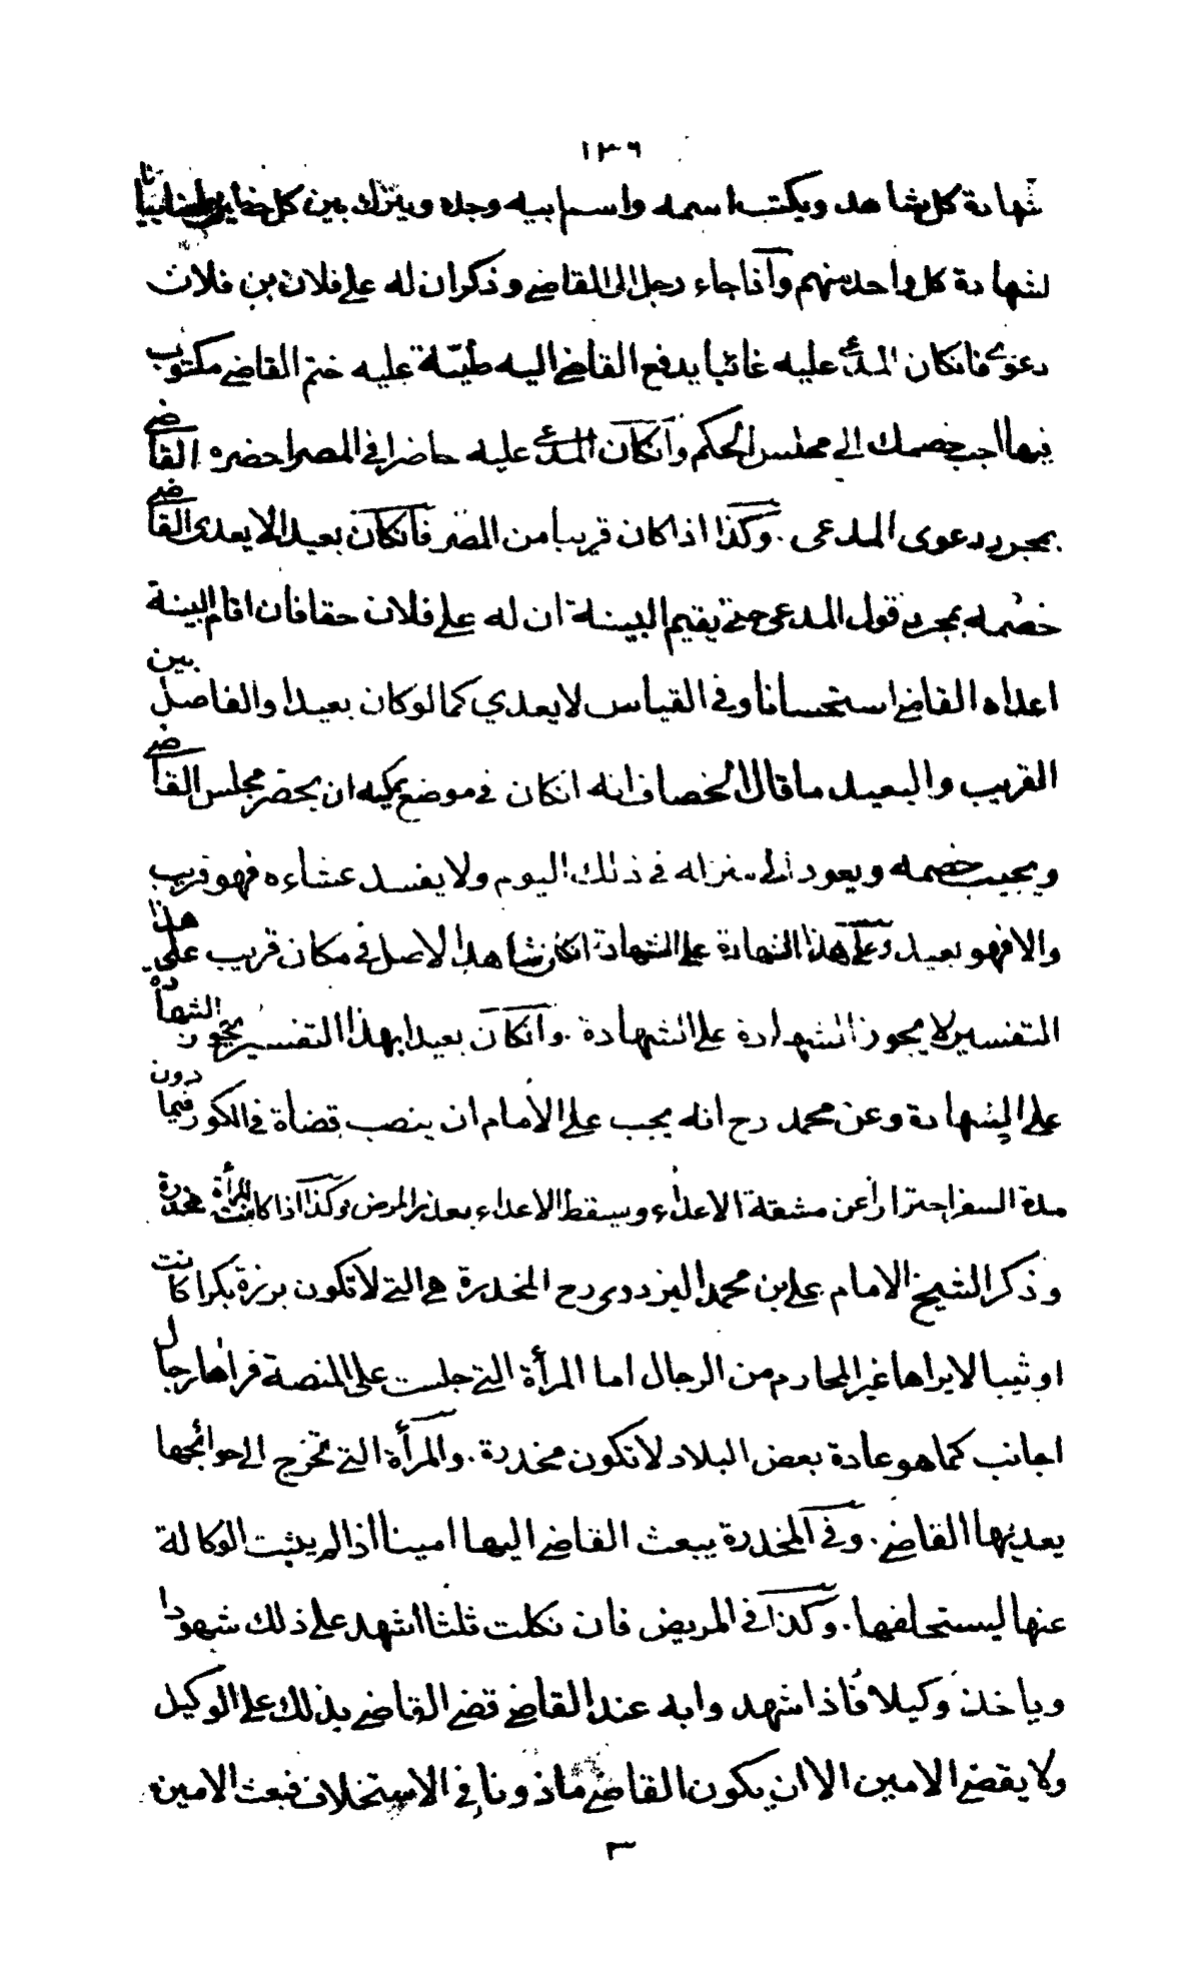 ١٣٦
شهادة كل شاهد ويكتب اسمه واسم ابيه وجده ويترك بين كل
لشهادة كل واحد منهم وآذا جاء رجل الى القاضي وذكر ان له علي فلان بن فلان
دعوى فانكان المدعي عليه غائبا يدفع القاضي اليه طينة عليه ختم القاضي مكتوب
فيها اجب خصمك الى مجلس الحكم وآنكان المدعي عليه حاضرا في المصر احضره القاضي
بمجرد دعوى المدعى . وكذا اذا كان قريبا من المصر فآنكان بعيدا لا يعدى القاضي
خصمه بمجرد قول المدعى حتى يقيم البينة ان له علي فلان حقا فان اقام البينة
اعداه القاضي استحسانا وفي القياس لا يعدي كما لو كان بعيدا والفاصل بين
القريب والبعيد ما قال الخصاف انه انكان في موضع يمكنه ان يحضر مجلس القاضي
ويجيب خصمه ويعود الى منزله في ذلك اليوم ولا يفسد عشاءه فهو قريب
والا فهو بعيد وعلي هذا الشهادة علي الشهادة انكان شاهد الاصل في مكان قريب علي هذا
التفسير لا يجوز الشهادة علي الشهادة . وآنكان بعيدا بهذا التفسير يجوز الشهادة
علي الشهادة وعن محمد رح انه يجب علي الأمام ان ينصب قضاة في الكور فيما دون
مدة السفر احترازا عن مشقة الاعداء ويسقط الاعداء بعذر المرض وكذا اذا كانت المرأة مخدرة
وذكر الشيخ الامام علي بن محمد البزدوى رح المخدرة هي التي لا تكون برزة بكرا كانت
او ثيبا لا يراها غير المحارم من الرجال اما المرأة التي جلست علي المنصة فراها رجال
اجانب كما هو عادة بعض البلاد لا تكون مخدرة . والمرأة التي تخرج الى حوائجها
يعديها القاضي . وفي المخدرة يبعث القاضي اليها امينا اذا لم يثبت الوكالة
عنها ليستحلفها . وكذا في المريض فان نكلت ثلثا اشهد علي ذلك شهودا
وياخذ وكيلا فاذا شهدوا به عند القاضي قضي القاضي بذلك علي الوكيل
ولا يقضي الامين الا ان يكون القاضي ماذونا في الاستخلاف فبعث الامين
٣